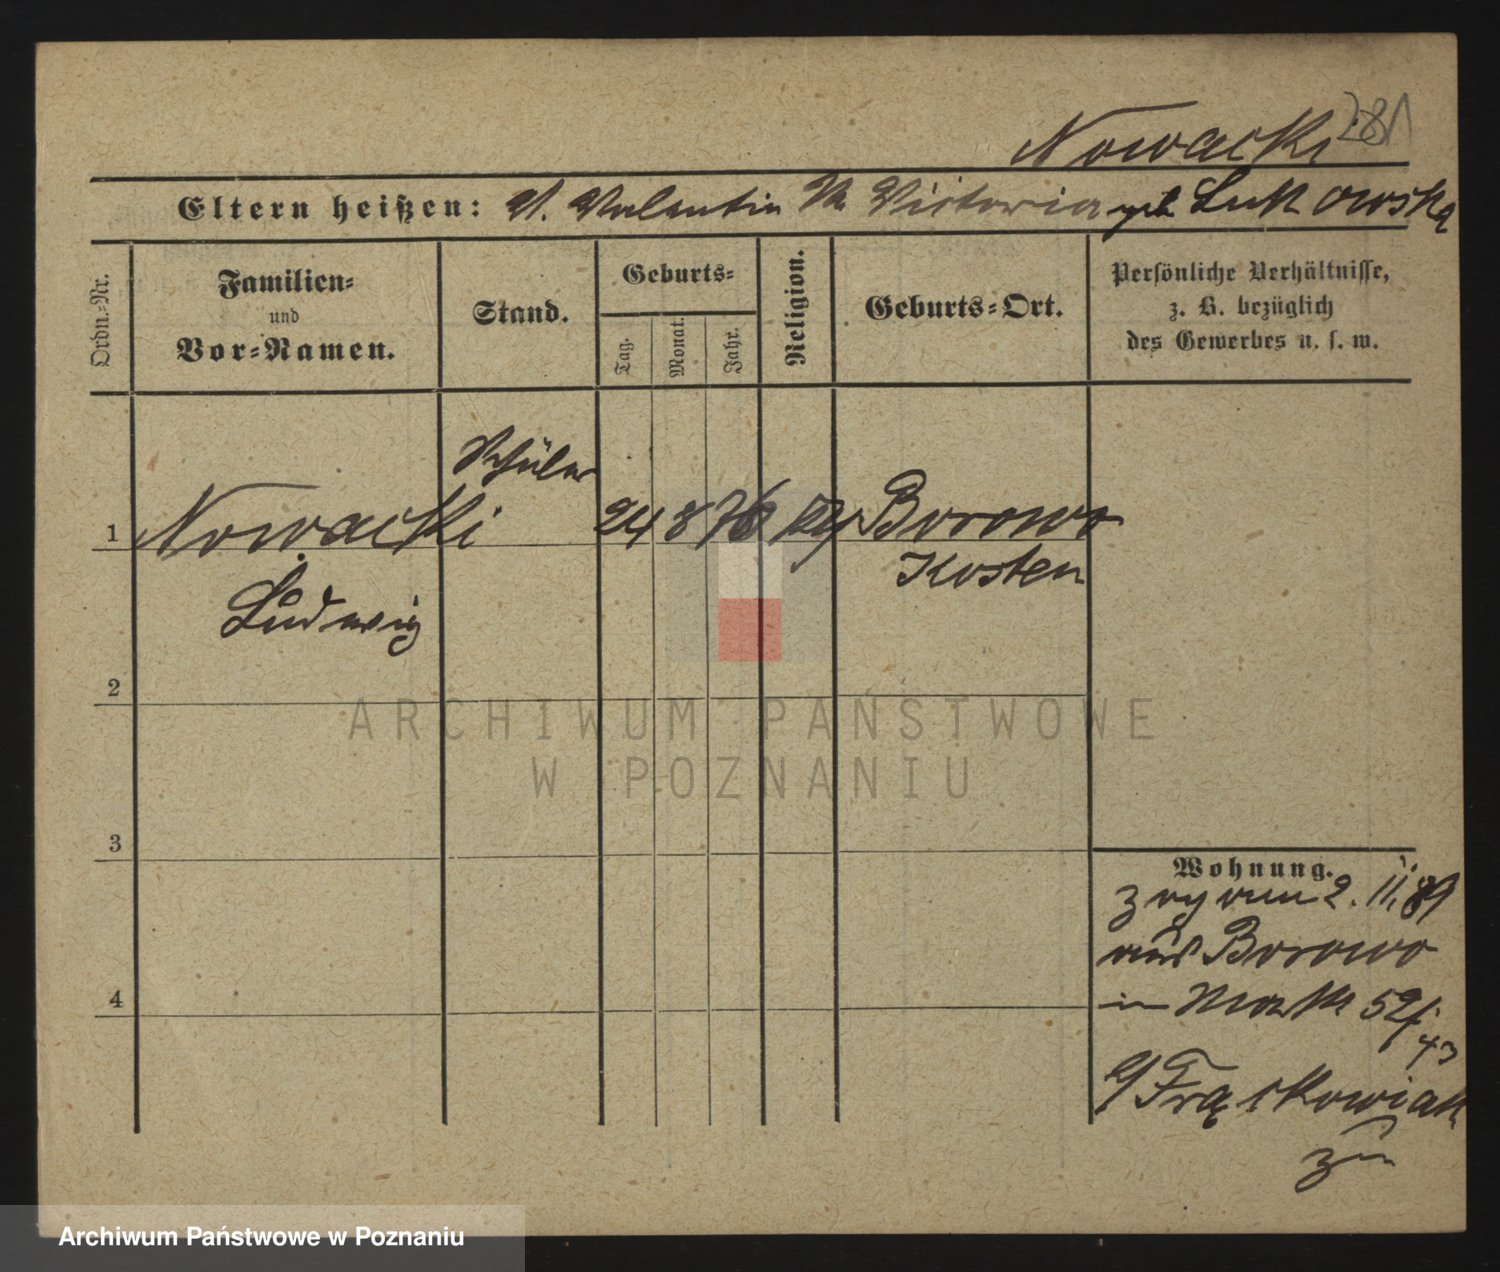 281
Nowacki
Eltern heißen: V. Valentin M. Victoria geb Lukowska
Ordn.-Nr.
Familien-
und
Vor-Namen.
Stand.
Geburts-
Tag.
Monat.
Jahr.
Religion.
Geburts-Ort.
Persönliche Verhältnisse,
z. B. bezüglich
des Gewerbes u. s. w.
Schüler
1 Nowacki 24 8 76 Borowo
Kosten
Ludwig
2
3
4
Wohnung.
zog am 2. 11. 89
aus Borowo
in Markt 52/
43
b/ Frąckowiak
zu
ARCHIWUM PAŃSTWOWE
W POZNANIU
Archiwum Państwowe w Poznaniu